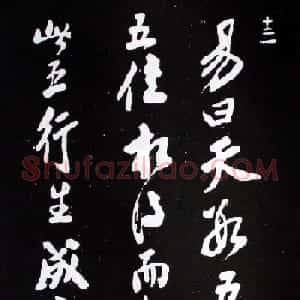 十二
易曰天數五
五位相得而
此五行生成
Shufaziliao.COM